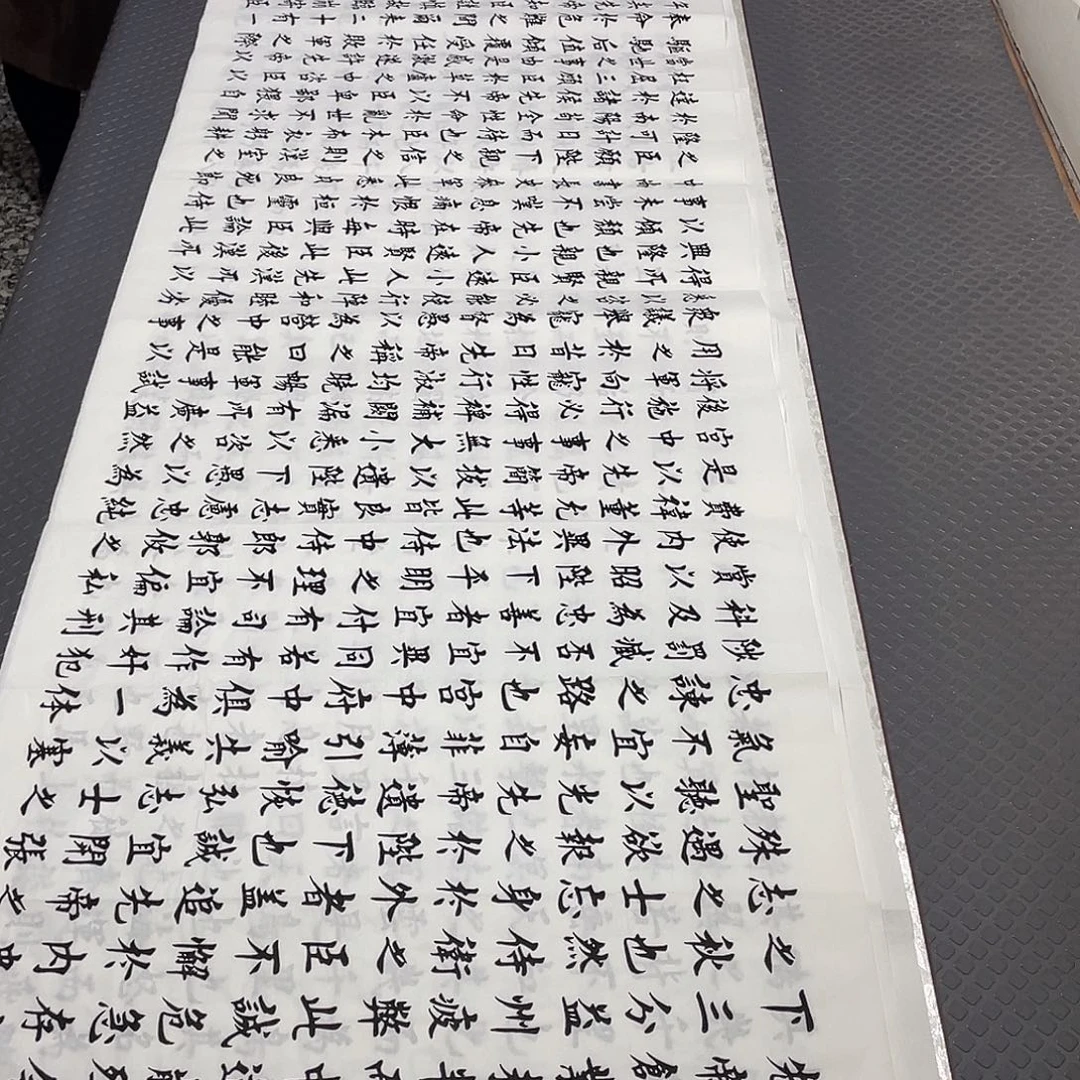 先帝創業未半而中道崩
下三分益州疲弊此誠危急存
之秋也然侍衛之臣不懈於内忠
志之士忘身於外者蓋追先帝之
殊遇欲報之於陛下也誠宜開張
聖聽以光先帝遺德恢弘志士之
氣不宜妄自菲薄引喻失義以塞
忠諫之路也宮中府中俱為一体
陟罰臧否不宜異同若有作奸犯
科及為忠善者宜付有司論其刑
賞以昭陛下平明之理不宜偏私
使内外異法也侍中侍郎郭攸之
費禕董允等此皆良實志慮忠純
是以先帝簡拔以遺陛下愚以為
宮中之事事無大小悉以咨之然
後施行必得裨補闕漏有所廣益
將軍向寵性行淑均曉暢軍事試
用之於昔日先帝稱之曰能是以
衆議舉寵為督愚以為營中之事
悉以咨之必能使行陣和睦優劣
得所親賢臣遠小人此先漢所以
興隆也親小人遠賢臣此後漢所
以傾頹也先帝在時每與臣論此
事未嘗不歎息痛恨於桓靈也侍
中尚書長史參軍此悉貞良死節
之臣願陛下親之信之則漢室之
隆可計日而待也臣本布衣躬耕
於南陽苟全性命於亂世不求聞
達於諸侯先帝不以臣卑鄙猥自
枉屈三顧臣於草廬之中咨臣以
當世之事由是感激遂許先帝以
驅馳後值傾覆受任於敗軍之際
奉命於危難之間爾來二十有一